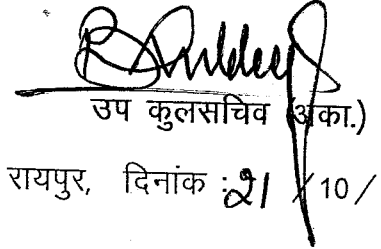 उप कुलसचिव (अका.)
रायपुर, दिनांक :21 / 10 /